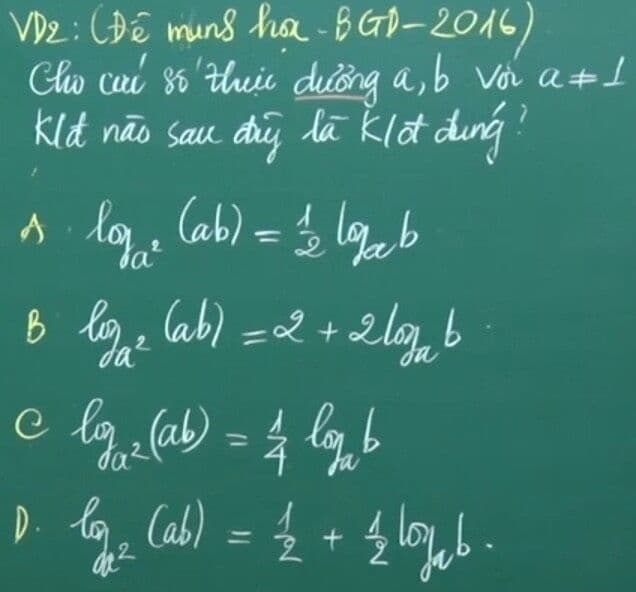 VD2: (Đề minh họa - BGD-2016)
Cho các số thực dương a, b với a ≠ 1
K/đ nào sau đây là K/đ đúng?
A. log_{a²} (ab) = 1/2 log_a b
B log_{a²} (ab) = 2 + 2log_a b
C log_{a²} (ab) = 1/4 log_a b
D. log_{a²} (ab) = 1/2 + 1/2 log_a b.